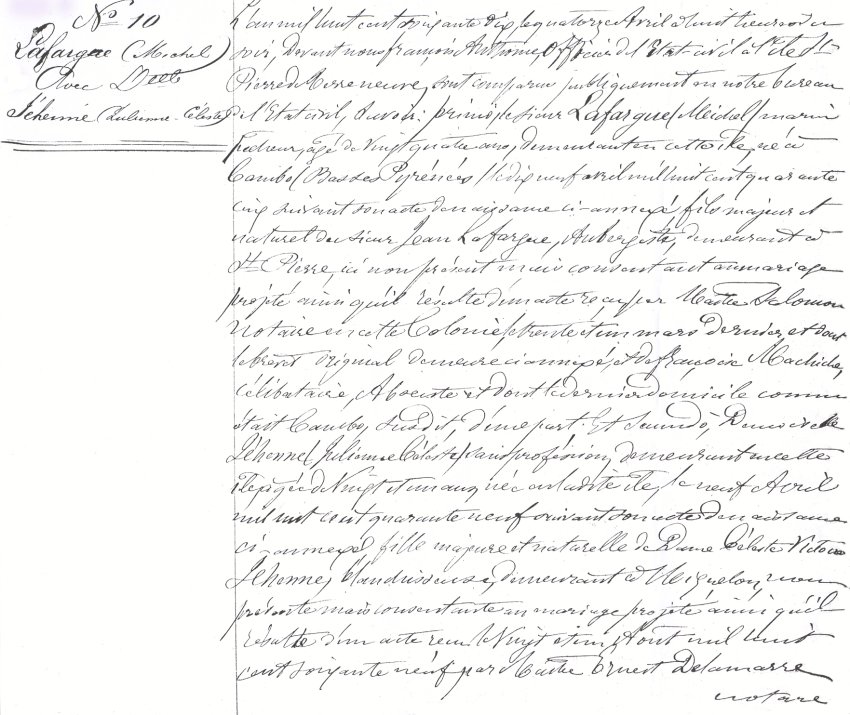 No 10
Lafargue (Michel)
Avec Delle
Jéhenne (Julienne-Céleste)
L'an mil huit cent soixante dix, le quatorze Avril à huit heures du
soir, devant nous françois Officier de l'Etat-civil à l'île St
Pierre de Terre neuve, sont comparus publiquement en notre bureau
de l'Etat civil, savoir: primò, le sieur Lafargue (Michel) marin
pêcheur, âgé de Vingt quatre ans, demeurant en cette île, né à
Cambo (Basses Pyrénées) le dix neuf avril mil huit cent quarante
cinq suivant son acte de naissance ci-annexé, fils majeur et
naturel du sieur Jean Lafargue, Aubergiste, demeurant à
St Pierre, ici non présent mais consentant au mariage
projeté ainsi qu'il résulte d'un acte reçu par Maître Salomon
Notaire en cette Colonie, le trente et un mars dernier, et dont
le brevet original demeure ci annexé, et de françoise Machiche,
célibataire, Absente et dont le dernier domicile connu
était Cambo, susdit, d'une part. Et Secundò, Demoiselle
Jéhenne (Julienne Céleste) sans profession, demeurant en cette
île, agée de Vingt et un ans, née en ladite île, le neuf Avril
mil huit cent quarante neuf suivant son acte de naissance
ci-annexé, fille majeure et naturelle de Dame Céleste Victoire
Jéhenne, blanchisseuse, demeurant à Miquelon, non
présente mais consentante au mariage projeté ainsi qu'il
résulte d'un acte reçu le Vingt et un Août mil huit
cent soixante neuf par Maître Ernest Delamarre
notaire